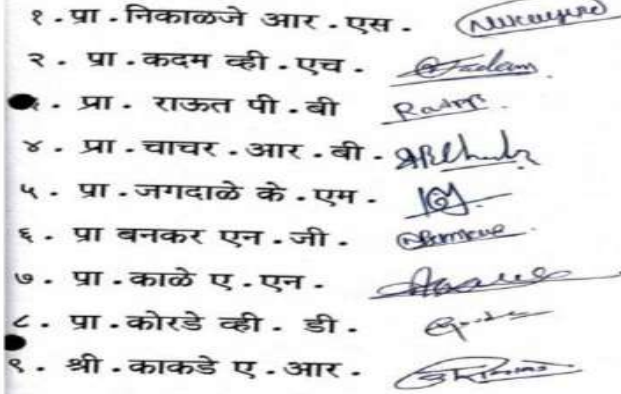 १.प्रा.निकाळजे आर.एस.
२. प्रा.कदम व्ही.एच.
. प्रा. राऊत पी.बी
४. प्रा.चाचर.आर.बी.
५. प्रा.जगदाळे के.एम.
६. प्रा बनकर एन.जी.
७. प्रा.काळे ए.एन.
८. प्रा.कोरडे व्ही. डी.
९. श्री.काकडे ए.आर.